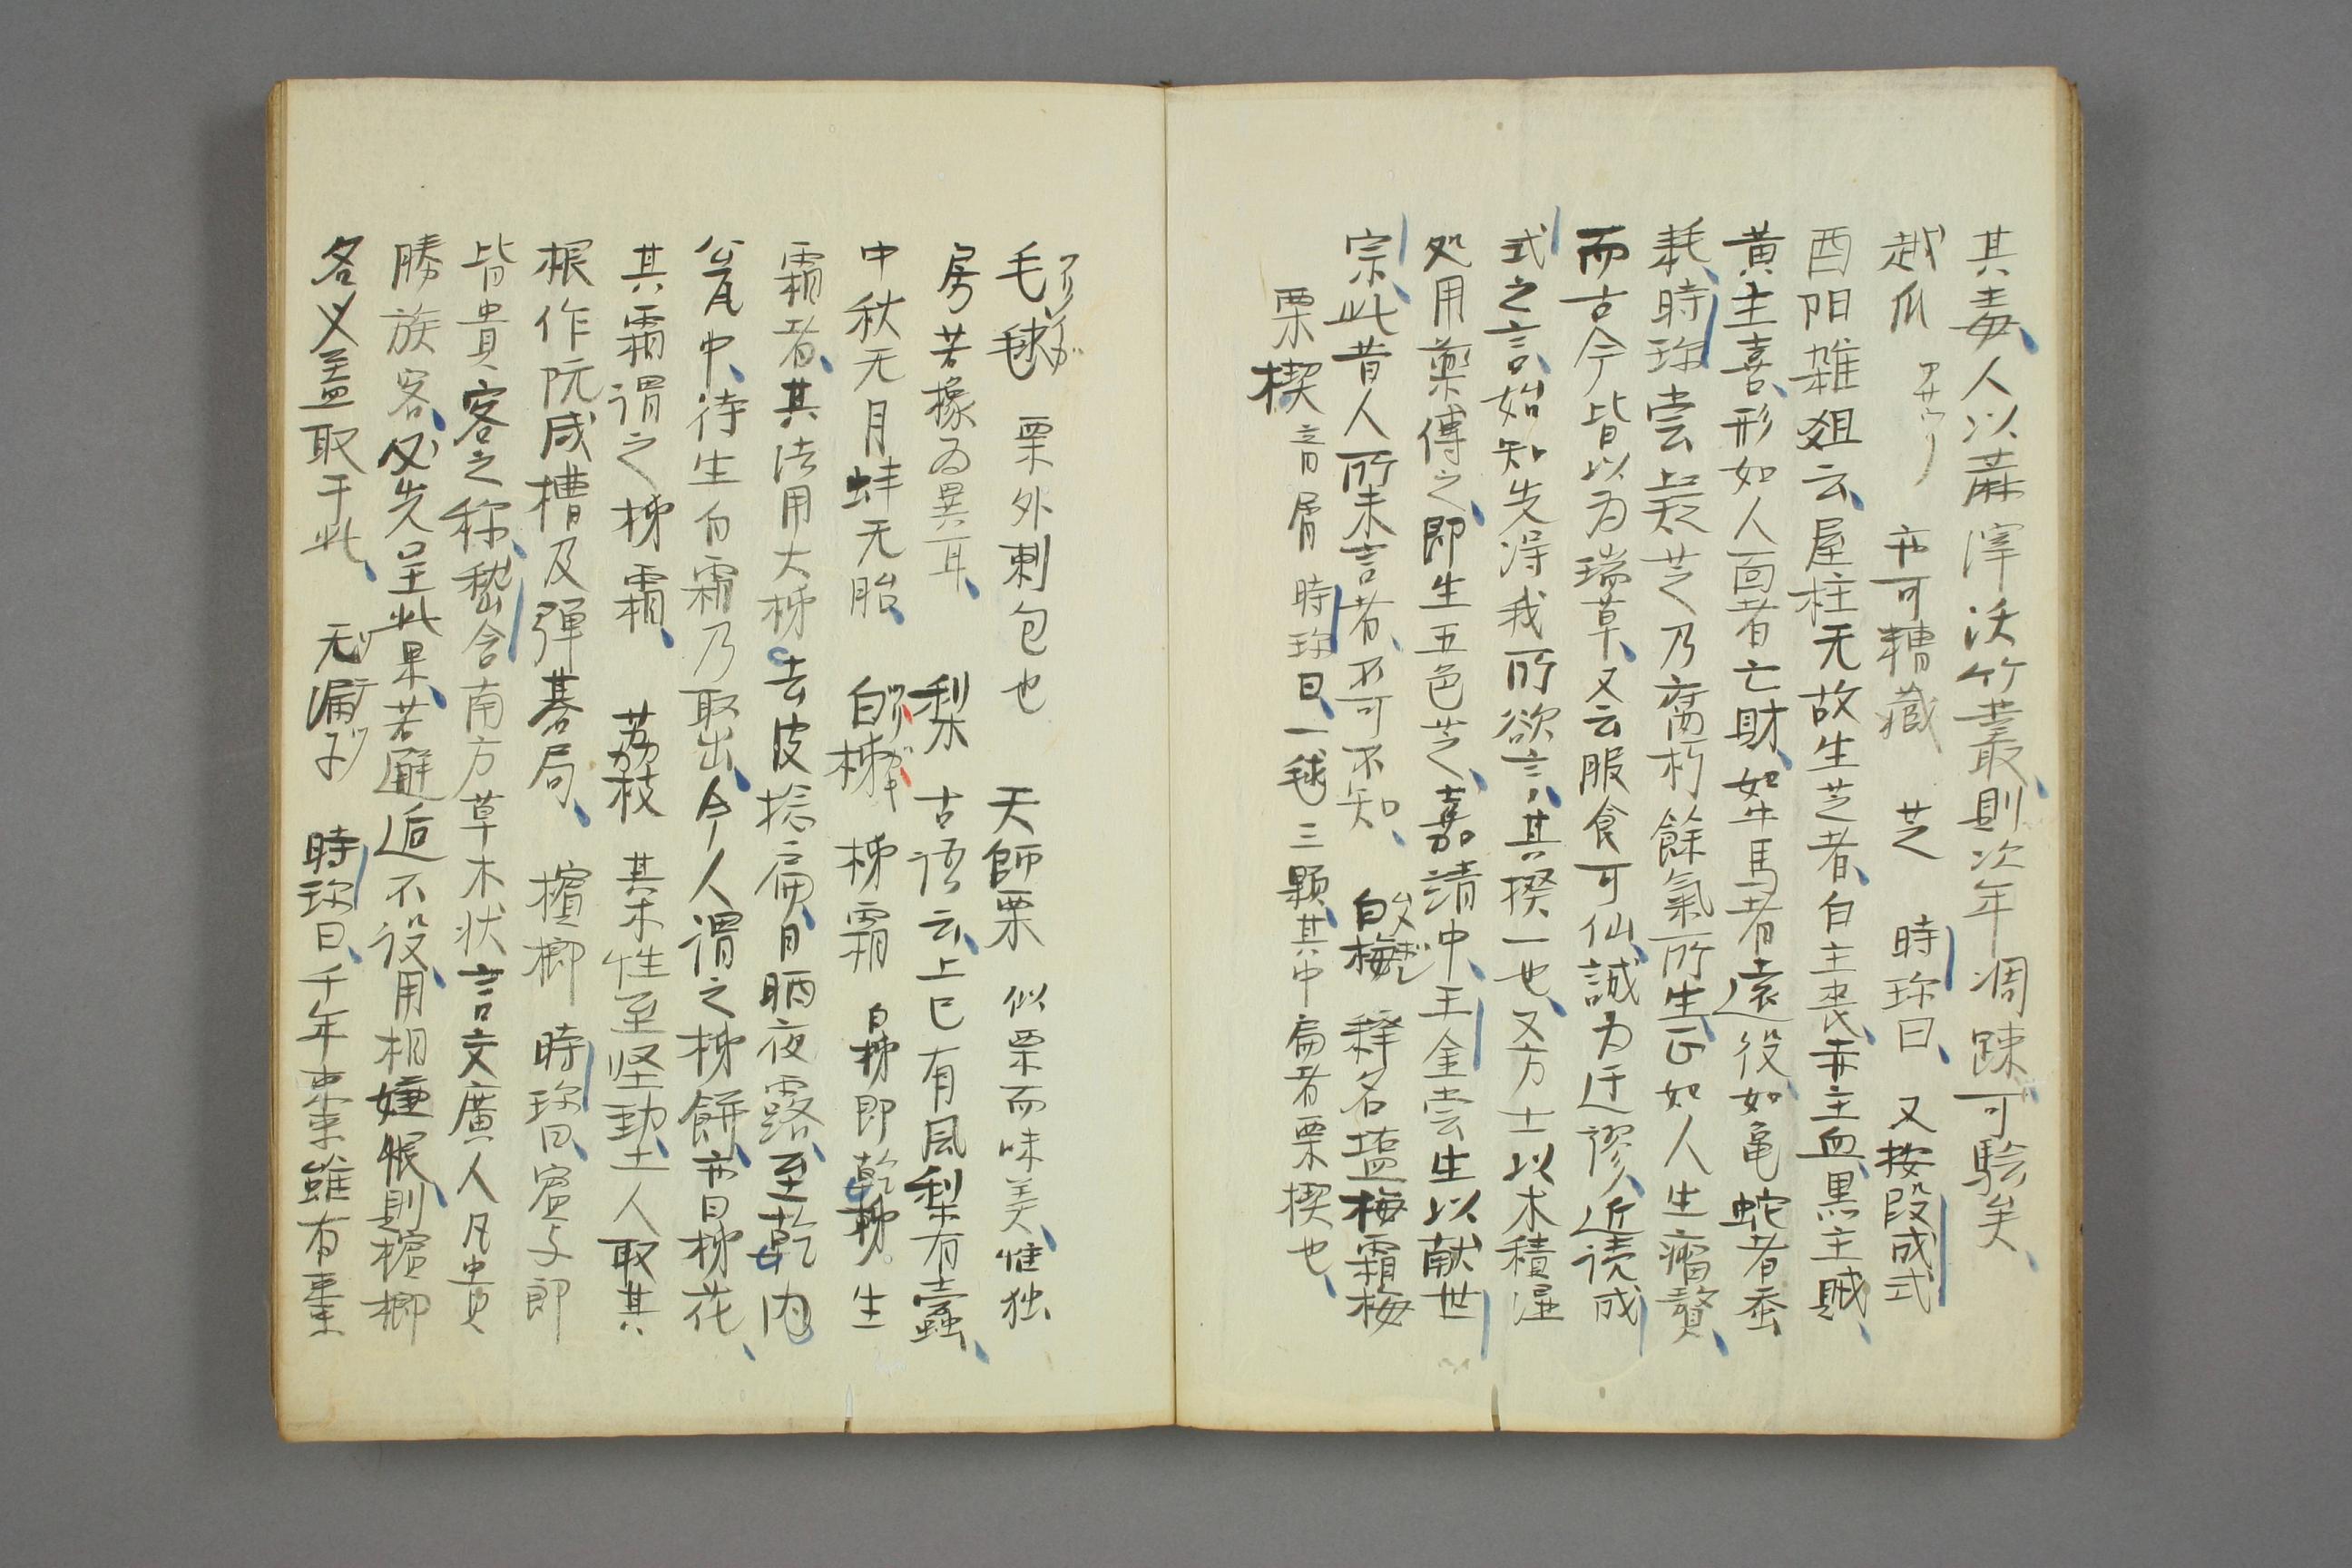 其毒、人以蔴滓沃竹叢、則次年凋踈、可騐矣、
越瓜 アサウリ 亦可糟藏 芝 時珍曰、又按段成式
酉阳雑俎云、屋柱无故生芝者、白主喪、赤主血、黒主賊、
黄主喜、形如人面者亡財、如牛馬者遠役、如亀蛇者蚕
耗、時珍嘗疑芝乃腐朽餘氣所生、正如人生瘤贅、
而古今皆以为瑞草、又云服食可仙、誠为迂謬、近读成
式之言、始知先得我所欲言、其揆一也、又方士以木積湿
処用藥傅之、即生五色芝、嘉靖中、王金嘗生以献世
宗、此昔人所未言者、不可不知、 白梅 释名塩梅霜梅
栗楔 音屑 時珍曰、一毬三顆、其中扁者栗楔也、
毛毬 栗外刺包也 天師栗 似栗而味美、惟独
房若橡为異耳、 梨 古语云、上巳有風梨有蠹、
中秋无月蚌无胎、 白柹 柹霜 白柹即乾柹。生
霜者、其法用大柹去皮捻扁、日晒夜露、至乾内
瓮中、待生白霜乃取出、今人谓之柹餅、亦曰柹花、
其霜谓之柹霜、 荔枝 其木性至坚勁、土人取其
根作阮咸槽及彈碁局、 檳榔 時珍曰、賓与郎
皆貴客之称、嵆含南方草木状言交廣人凡貴
勝族客、必先呈此果、若邂逅不设、用相嫌恨、則檳榔
名义盖取于此、 无漏子 時珍曰、千年棗雖有棗